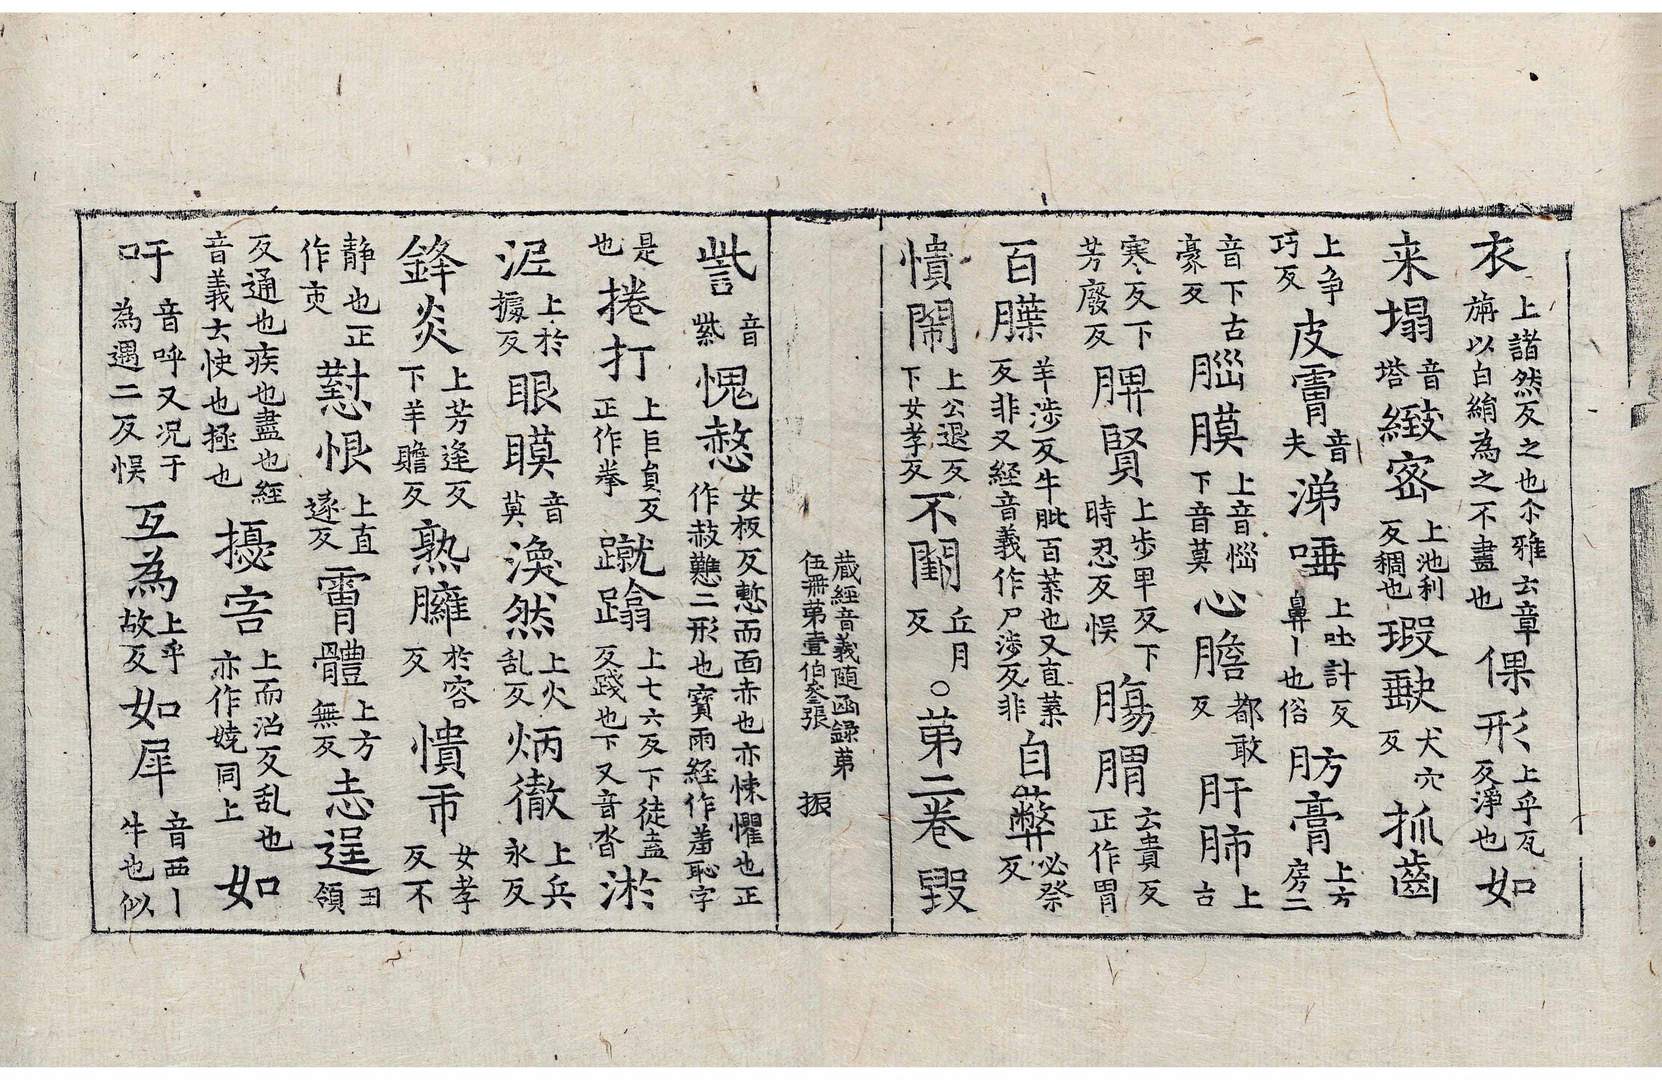 衣上諸然反之也尒雅云章旃以白絹為之不盡也倮形上乎瓦反淨也如
来塌音塔緻密上池利反稠也瑕𤿎犬穴反抓齒
上爭巧反皮膚音夫涕唾上吐計反鼻丨也俗肪膏上方房二
音下古豪反腦膜上音惱下音莫心膽都敢反肝肺上古
寒反下芳廢反脾腎上步卑反下時忍反悮腸𦝩云貴反正作胃
百䐑羊涉反牛肶百葉也又直葉反非又經音義作尸涉反非自弊必祭反
憒閙上公退反下女孝反不關丘月反○苐二卷毀
藏經音義隨函録苐伍冊第壹伯叁張 振
訾音紫愧㦗女板反慙而面赤也亦悚懼也正作赦戁二形也寶雨経作羞恥字
是也捲打上巨負反正作拳蹴蹹上七六反下徒盍反踐也下又音沓淤
泥上於據反眼瞙音莫渙然上火乱反炳徹上兵永反
鋒炎上芳逢反下羊贍反熟臃於容反憒丙女孝反不
静也正作夾懟恨上直遂反膚體上方無反志逞丑領
反通也疾也盡也經音義云快也極也擾害上而沼反乱也亦作嬈同上如
吁音呼又况于為遇二反悮互為上乎故反如犀音西丨牛也似